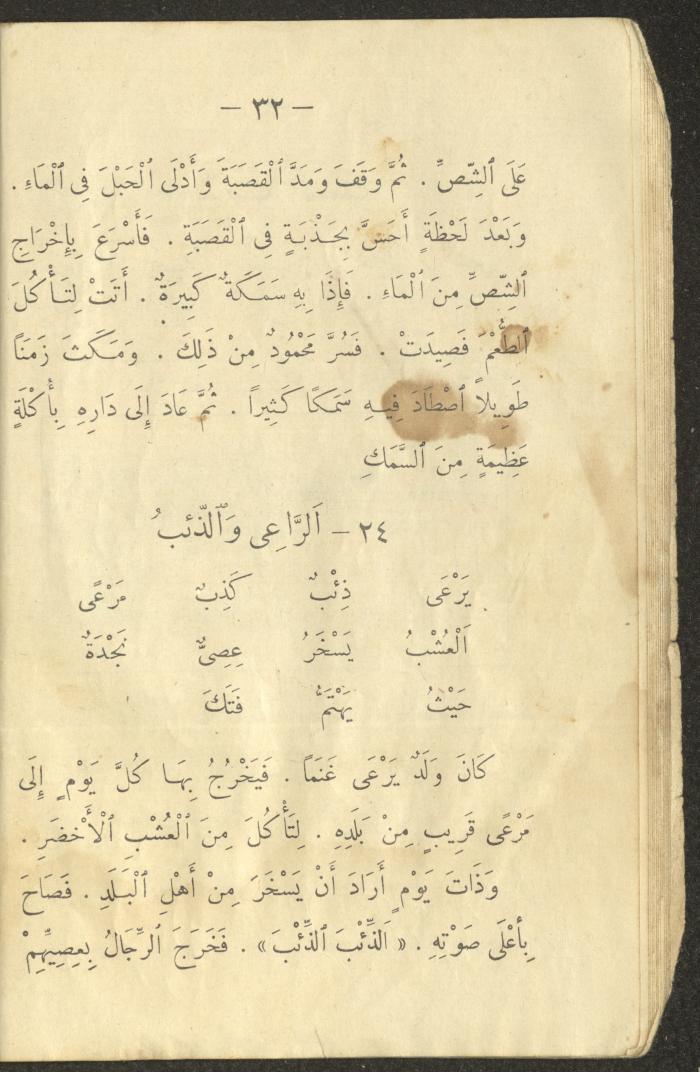 — ٣٢ —
عَلَى ٱلشِّصِّ . ثُمَّ وَقَفَ وَمَدَّ ٱلْقَصَبَةَ وَأَدْلَى ٱلْحَبْلَ فِى ٱلْمَاءِ .
وَبَعْدَ لَحْظَةٍ أَحَسَّ بِجَذْبَةٍ فِى ٱلْقَصَبَةِ . فَأَسْرَعَ بِإِخْرَاجِ
ٱلشِّصِّ مِنَ ٱلْمَاءِ . فَإِذَا بِهِ سَمَكَةٌ كَبِيرَةٌ . أَتَتْ لِتَأْكُلَ
ٱلطُّعْمَ فَصِيدَتْ . فَسُرَّ مَحْمُودٌ مِنْ ذَلِكَ . وَمَكَثَ زَمَنَاً
طَوِيلاً ٱصْطَادَ فِيهِ سَمَكًا كَثِيراً . ثُمَّ عَادَ إِلَى دَارِهِ بِأَكْلَةٍ
عَظِيمَةٍ مِنَ ٱلسَّمَكِ
٢٤ — اَلرَّاعِى وَٱلذِّئبُ
يَرْعَى ذِئْبٌ كَذِبٌ مَرْعًى
اَلْعُشْبُ يَسْخَرُ عِصِىٌّ نَجْدَةٌ
حَيْثُ يَهْتَمُّ فَتَكَ
كَانَ وَلَدٌ يَرْعَى غَنَمَاً . فَيَخْرُجُ بِهَا كُلَّ يَوْمٍ إِلَى
مَرْعًى قَرِيبٍ مِنْ بَلَدِهِ . لِتَأْكُلَ مِنَ ٱلْعُشْبِ ٱلْأَخْضَرِ .
وَذَاتَ يَوْمٍ أَرَادَ أَنْ يَسْخَرَ مِنْ أَهْلِ ٱلْبَلَدِ . فَصَاحَ
بِأَعْلَى صَوْتِهِ . « اَلذِّئْبَ ٱلذِّئْبَ » . فَخَرَجَ ٱلرِّجَالُ بِعِصِيِّهِمْ